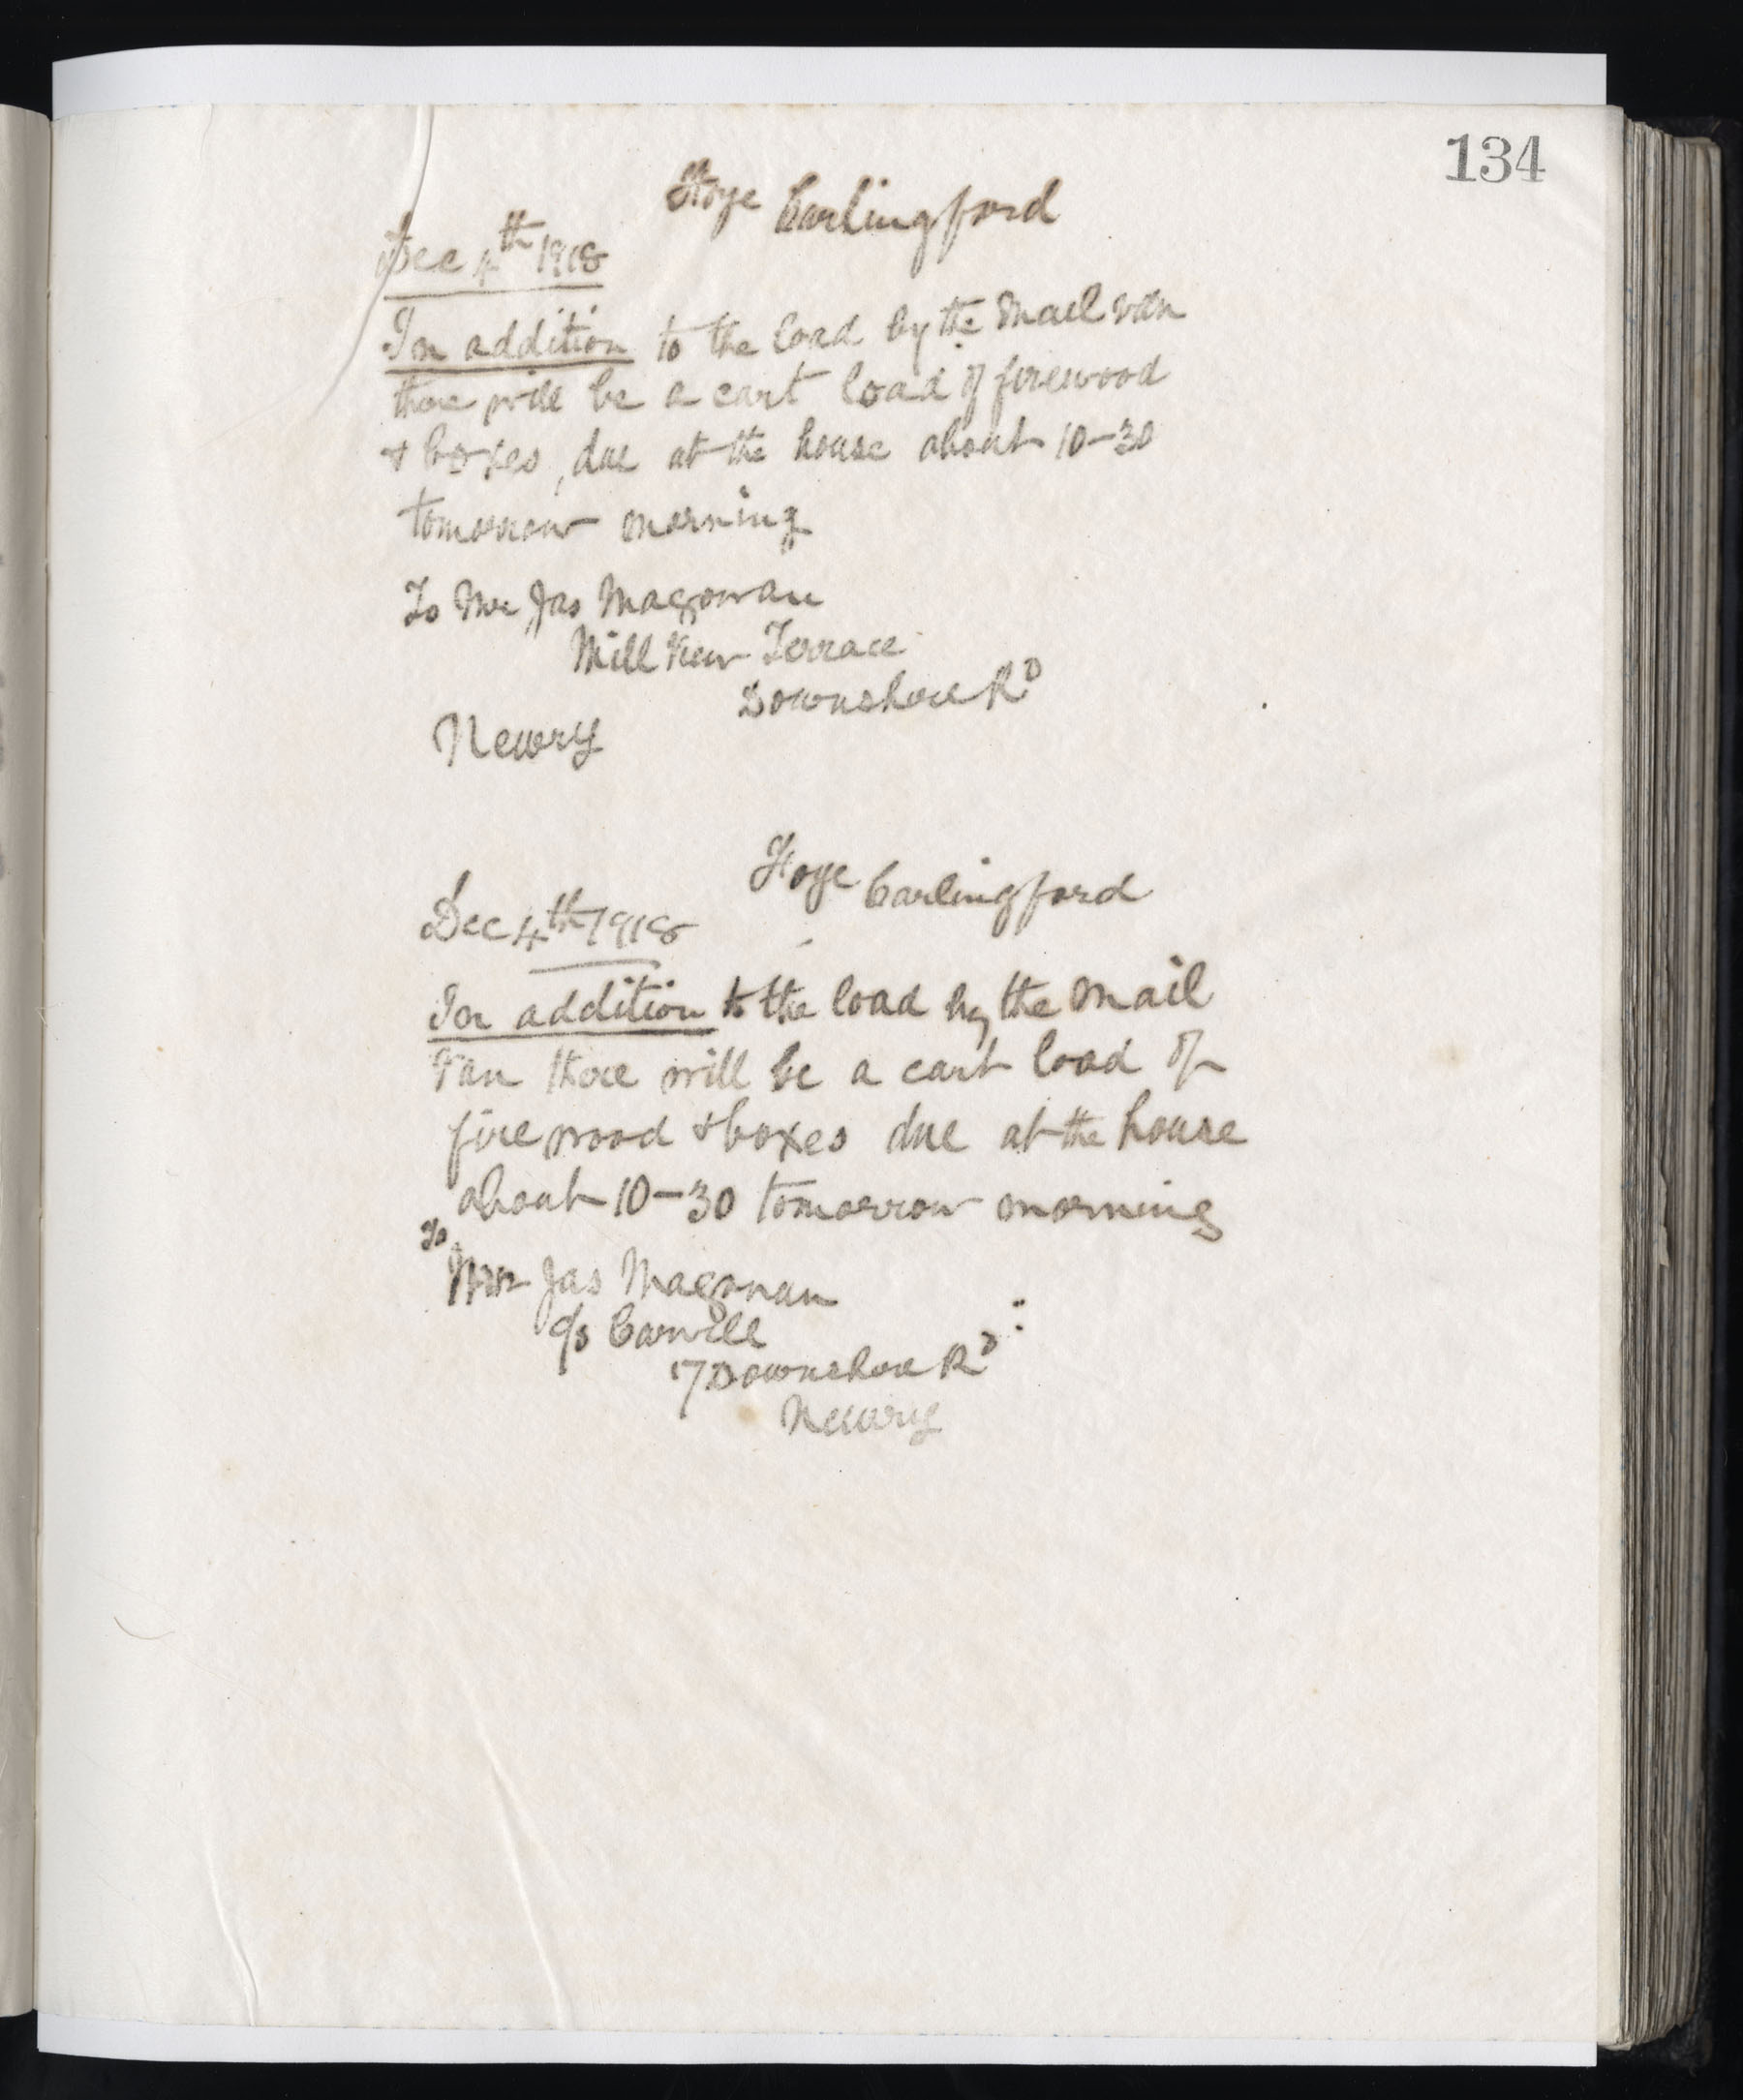 134
Foye Carlingford
Dec 4th 1918
In addition to the load by the mail van
there will be a cart load of firewood
& boxes, due at the house about 10-30
tomorrow morning
To Mr Jas Magowan
Mill View Terrace
Downshire Rd
Newry
Foye Carlingford
Dec 4th 1918
In addition to the load by the mail
van there will be a cart load of
fire wood & boxes due at the house
about 10-30 tomorrow morning
To
Mr Jas Magowan
c/o Carvill
17 Downshire Rd
Newry